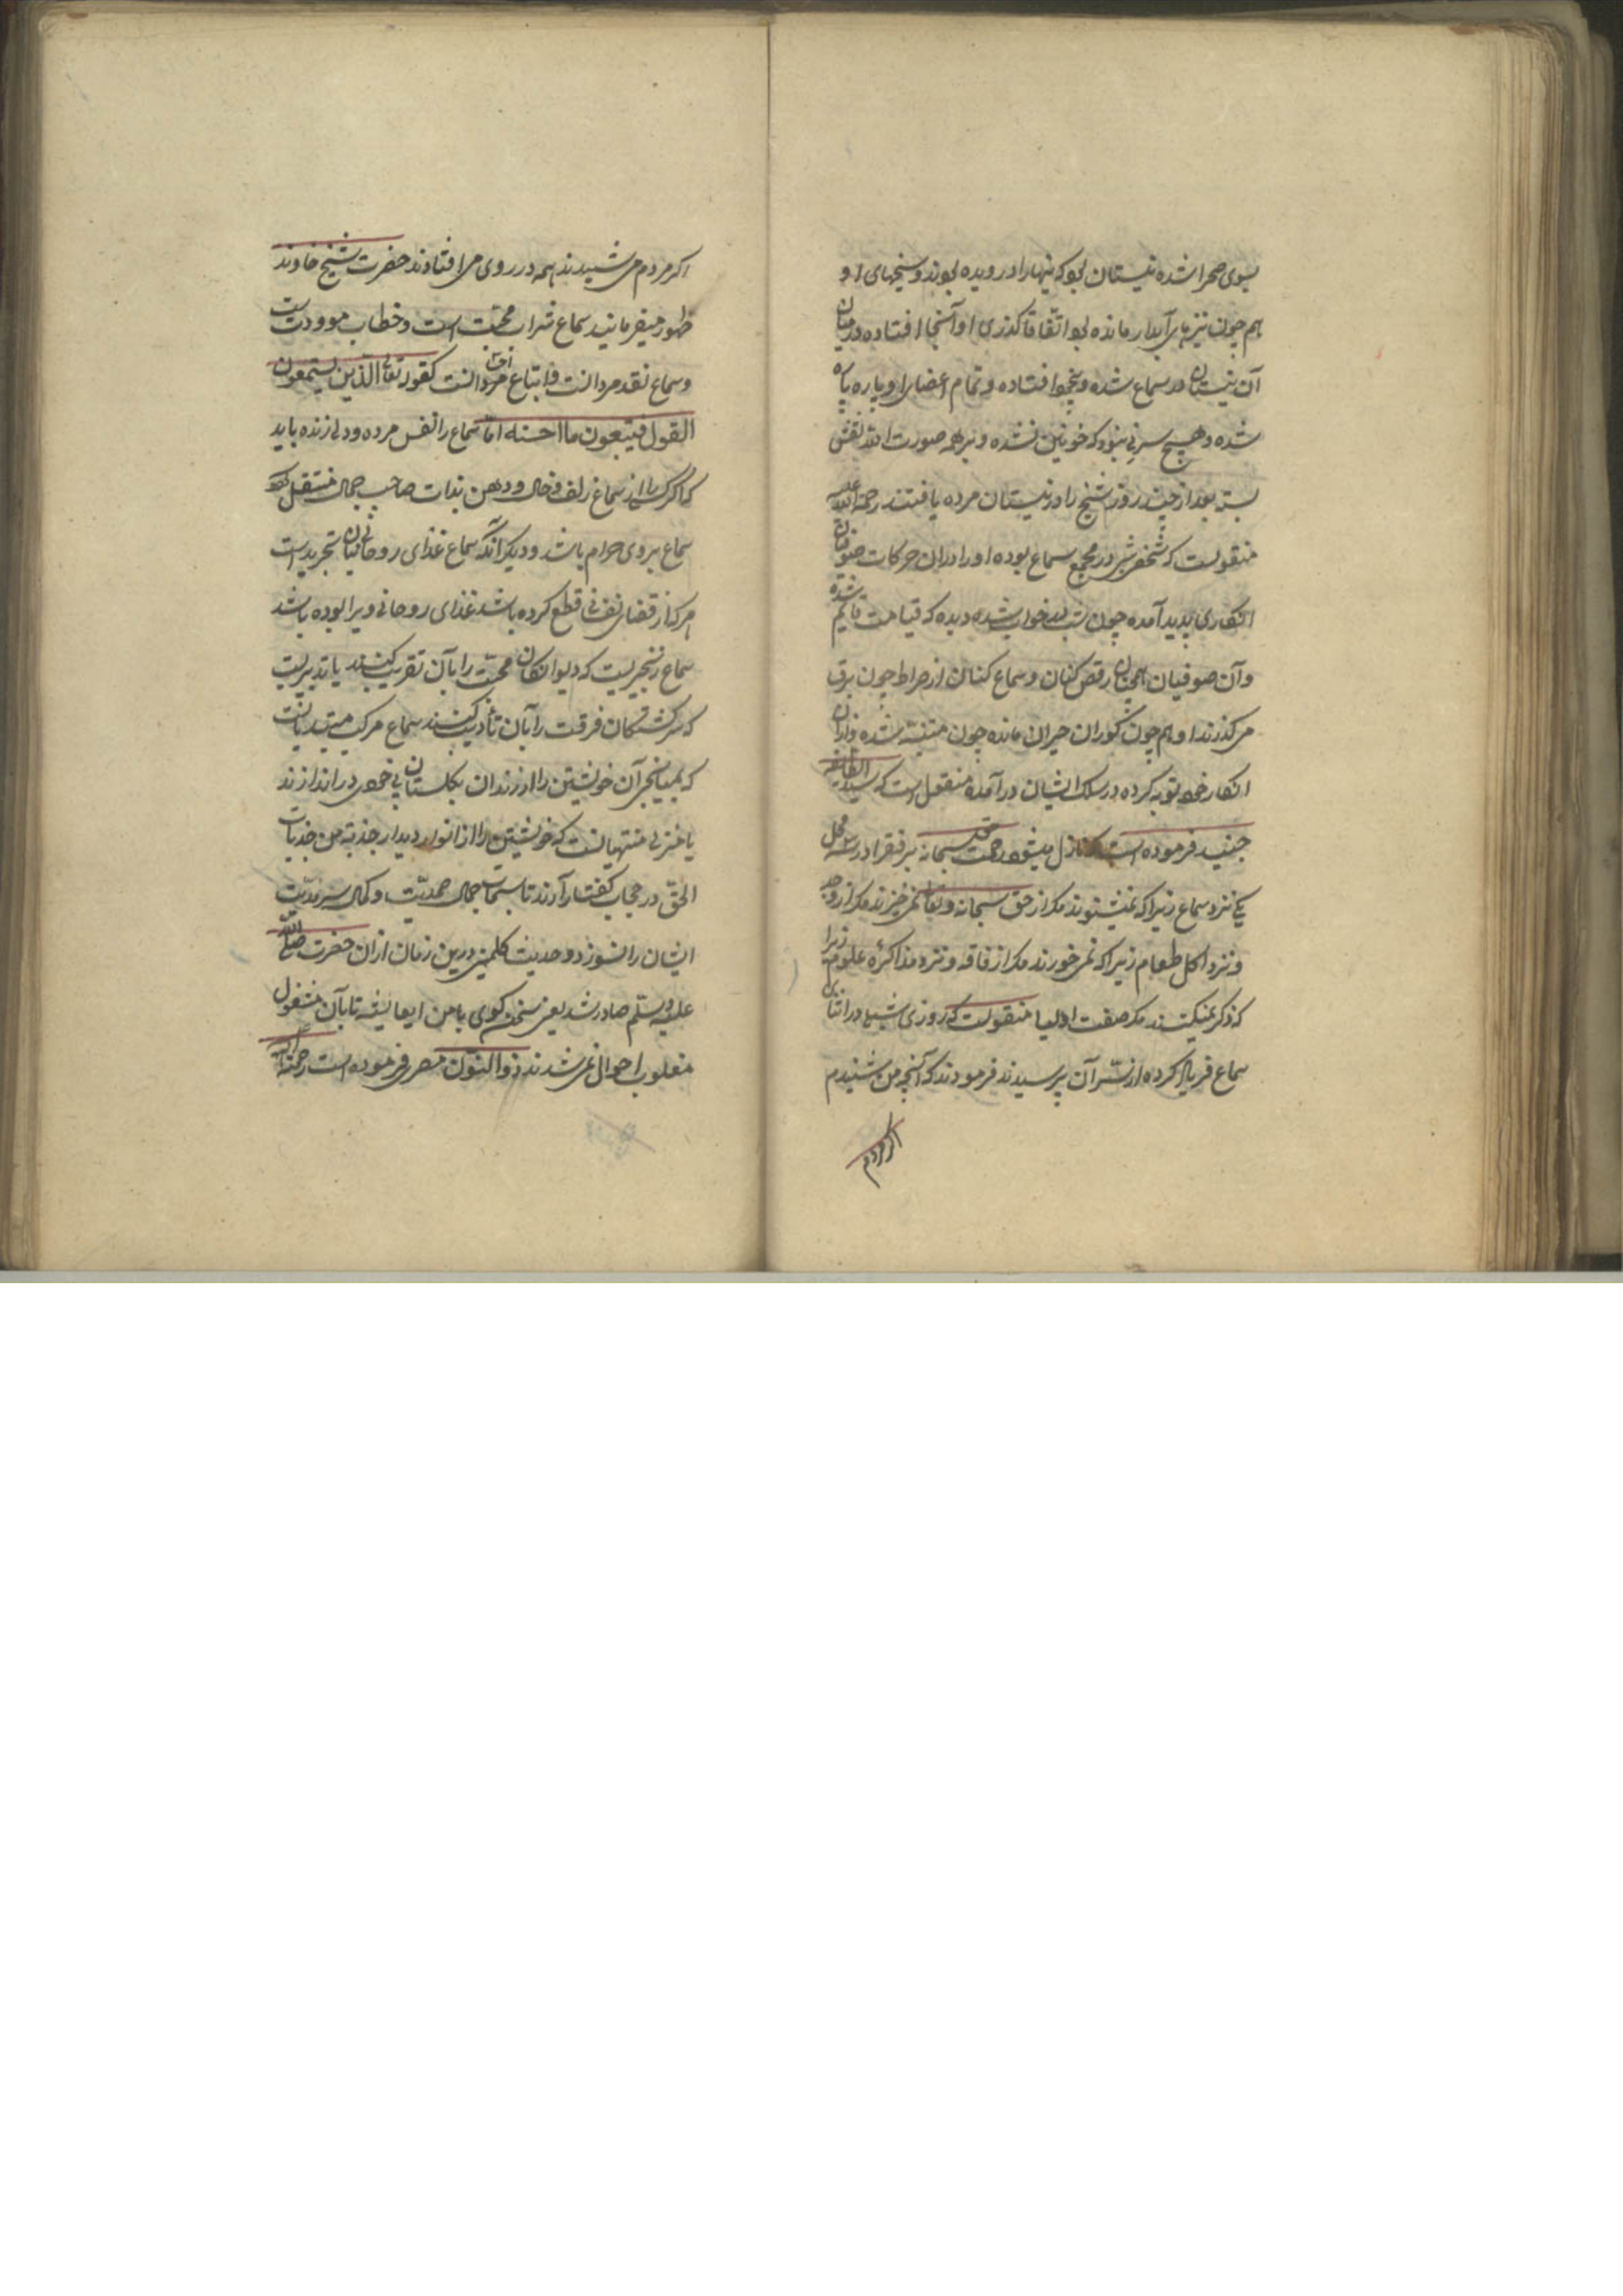 بسوی صحرا شده نیستان بود که نیها را درویده بودند و بیخهای او
هم چون نیزهای آبدار مانده بود اتفاقا گذری او آنجا افتاده در میان
آن نیستان در سماع شده و بیخود افتاده و تمام اعضای او پاره پاره
شده و هیچ سر نی نبود که خونین نشده و بر همه صورت الله نقش
بسته بعد از چند روز شیخ را در نیستان مرده یافتند رحمة الله علیه
منقولست که شخصی در مجمع سماع بوده او را در ان حرکات صوفیان
انکاری پدید آمده چون شب بخواب شده دیده که قیامت قایم شده
و آن صوفیان همچنان رقص کنان و سماع کنان از صراط چون برق
می گذرند او هم چون کوران حیران مانده چون متنبه شده و از ان
انکار خود توبه کرده در سلک ایشان در آمده منقول است که سید الطایفه
جنید فرموده است که نازل میشود رحمت حق سبحانه بر فقرا در سه محل
یکی نزد سماع زیرا که نمیشنوند مگر از حق سبحانه و تعالی نمی خیزند مگر از وجد
و نزد اکل طعام زیرا که نمی خورند مگر از فاقه و نزد مذاکرهٔ علوم زیرا
که ذکر نمیکنند مگر صفت اولیا منقولست که روزی شبلی در اثنای
سماع فریاد کرده از سر آن پرسیدند فرمودند که آنچه من شنیدم
اگر مردم
اگر مردم می شنیدند همه در روی می افتادند حضرت شیخ خاوند
ظهور میفرمایند سماع شراب محبت است و خطاب مودت است
و سماع نقد مردانست و اتباع مردانست کقوله تعالی الذین یستمعون
القول فیتبعون ما احسنه اما سماع را نفس مرده و دلی زنده باید
که اگر کسی را از سماع زلف و خال و دهن بذات صاحب جمال منتقل
سماع بر وی حرام باشد و دیگر آنکه سماع غذای روحانیان تجرید است
هر که از قضای نفسانی قطع کرده باشد غذای روحانی ویرا بوده باشد
سماع زنجیریست که دیوانگان محبت را بآن تقریب کنند یا تدبیریست
که سرکشتگان فرقت را بآن تأدیب کنند سماع مرکب مبتدیانست
که بمیانجی آن خویشتن را از زندان بگلستان بی خودی در اندازند
یا منزل منتهیانست که خویشتن را از انوار دیدار جذبة من جذبات
الحق در حجاب گفتار آرند تا سبحات جمال صمدیت و کمال سرمدیت
ایشان را نسوزد و حدیث کلمینی درین زمان از ان حضرت صلی الله
علیه وسلم صادر شد یعنی سخن گوی با من ای عایشه تا بآن مشغول
مغلوب احوال نمی شدند ذوالنون مصری فرموده است رحمة الله